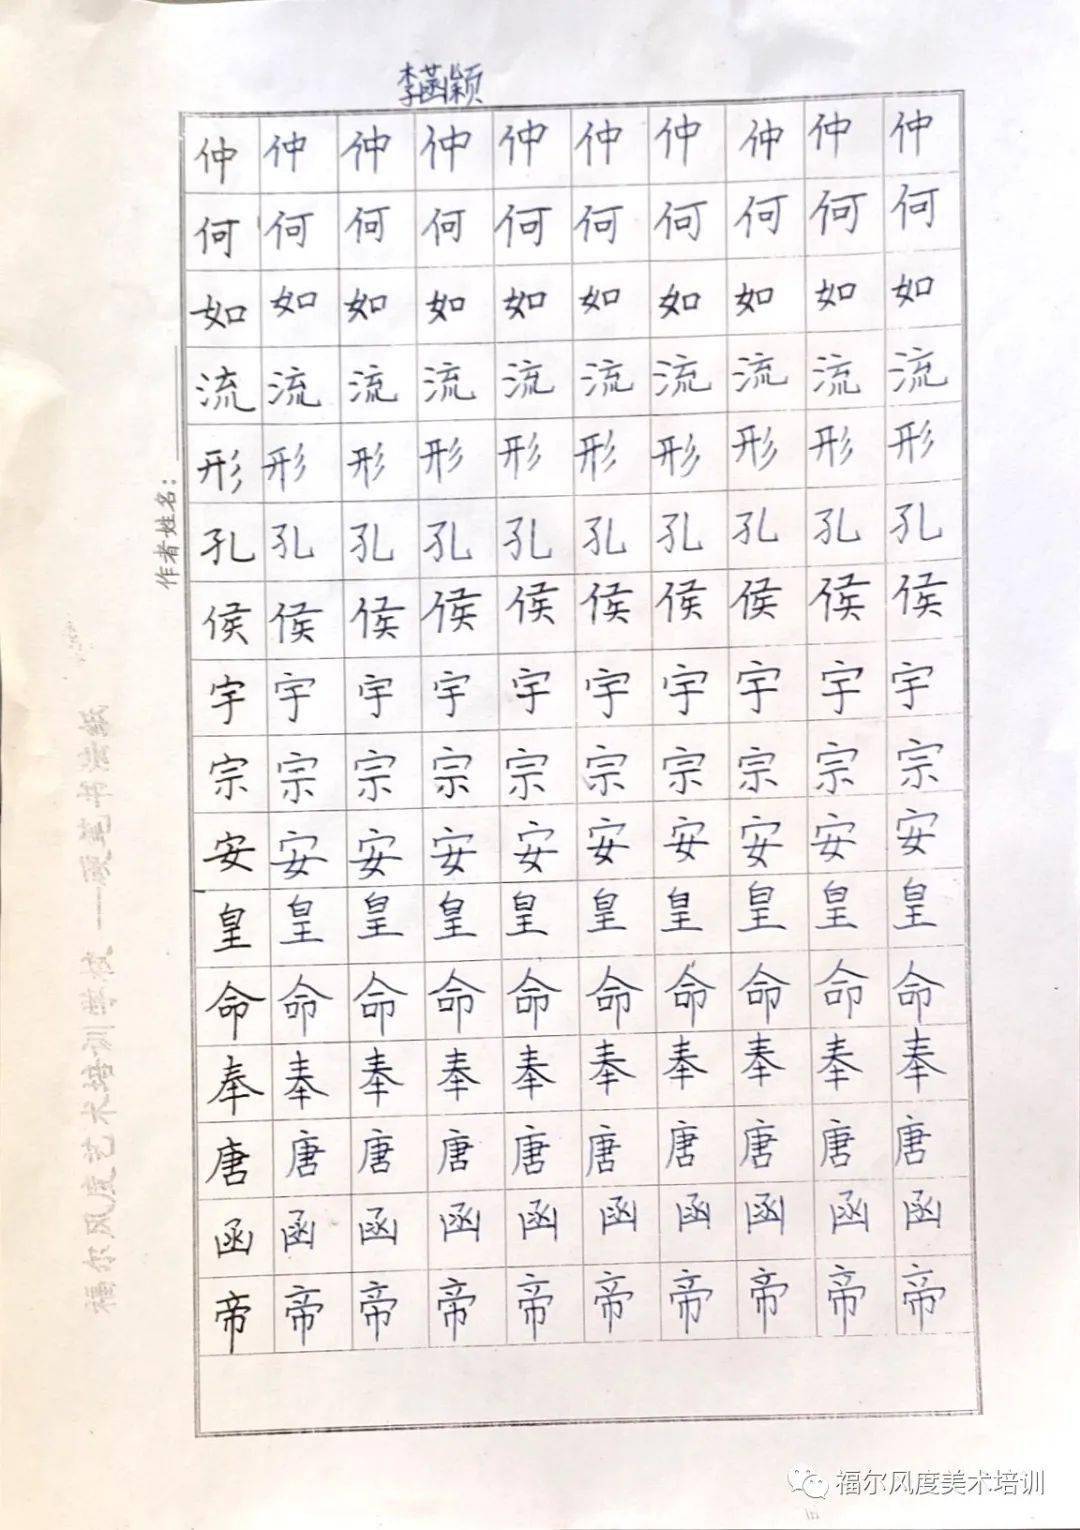 李菡颖
仲仲仲仲仲仲仲仲仲仲
何何何何何何何何何何
如如如如如如如如如如
流流流流流流流流流流
形形形形形形形形形形
孔孔孔孔孔孔孔孔孔孔
侯侯侯侯侯侯侯侯侯侯
宇宇宇宇宇宇宇宇宇宇
宗宗宗宗宗宗宗宗宗宗
安安安安安安安安安安
皇皇皇皇皇皇皇皇皇皇
命命命命命命命命命命
奉奉奉奉奉奉奉奉奉奉
唐唐唐唐唐唐唐唐唐唐
函函函函函函函函函函
帝帝帝帝帝帝帝帝帝帝
作者姓名：
福尔风度艺术培训学校——硬笔书法纸
福尔风度美术培训